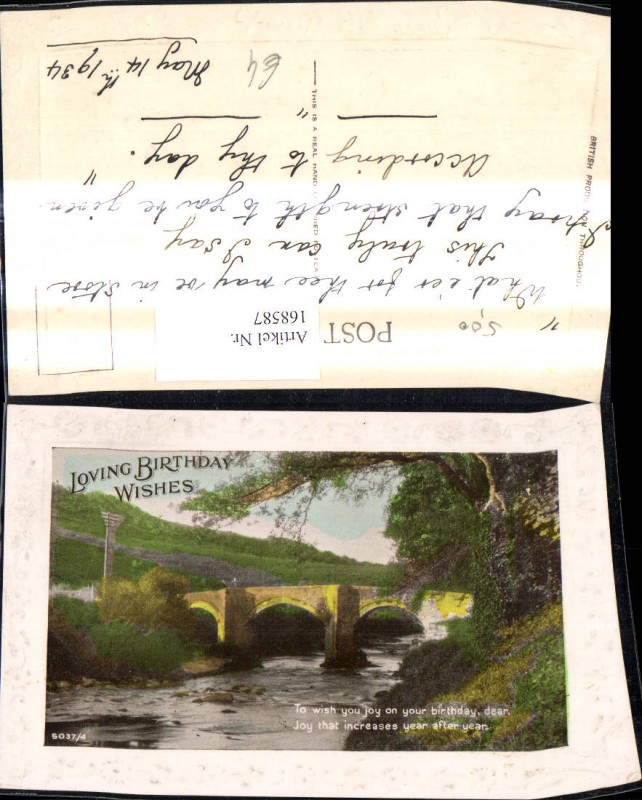 POST
5,00
Artikel Nr.
168587
"What e'er for thee may be in store
This truly can I say
I pray that strength to you be given
According to thy day."
64
May 14th 1934
THIS IS A REAL HAND
BRITISH PRODUCTION THROUGHOUT
LOVING BIRTHDAY
WISHES
To wish you joy on your birthday, dear,
Joy that increases year after year.
5037/4